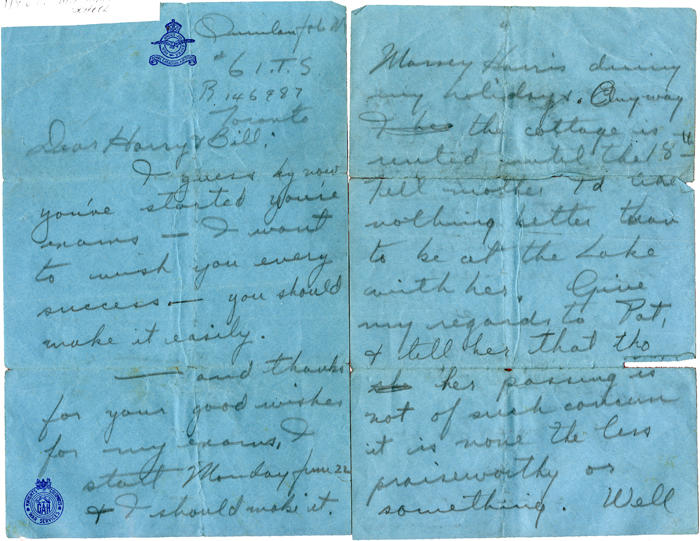 # 6 I.T.S
R.146987
Toronto
Dear Harry & Bill:
I guess by now
you've started you're
exams — I want
to wish you every
success — you should
make it easily.
— and thanks
for your good wishes
for my exams, I
start Monday June 22
& I should make it.
KNIGHTS OF COLUMBUS
WAR SERVICES
Massey Harris during
my holidays. Anyway
I the cottage is
rented until the 18th
Tell mother I'd like
nothing better than
to be at the Lake
with her. Give
my regards to Pat,
& tell her that tho
her passing is
not of such concern
it is none the less
praiseworthy or
something. Well